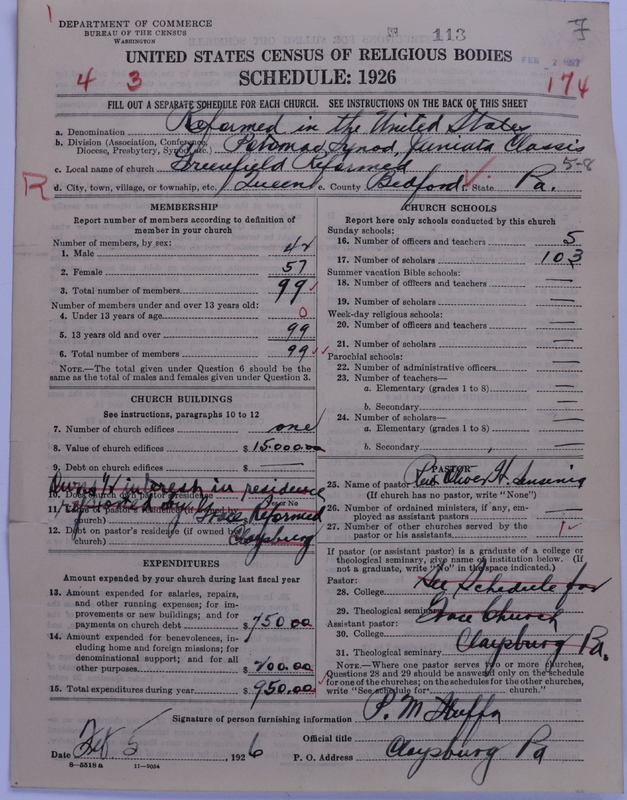 DEPARTMENT OF COMMERCE
BUREAU OF THE CENSUS
WASHINGTON
113
UNITED STATES CENSUS OF RELIGIOUS BODIES
SCHEDULE: 1926
4 3
174
FILL OUT A SEPARATE SCHEDULE FOR EACH CHURCH. SEE INSTRUCTIONS ON THE BACK OF THIS SHEET
a. Denomination Reformed in the United States
b. Division (Association, Conference, Diocese, Presbytery, Synod, etc.) Potomac Synod, Juniata Classis
c. Local name of church Greenfield Reformed 5-8
R
d. City, town, village, or township, etc. Queen e. County Bedford f. State Pa.
MEMBERSHIP
Report number of members according to definition of
member in your church
Number of members, by sex:
1. Male 42
2. Female 57
3. Total number of members 99
Number of members under and over 13 years old:
4. Under 13 years of age 0
5. 13 years old and over 99
6. Total number of members 99
NOTE.—The total given under Question 6 should be the
same as the total of males and females given under Question 3.
CHURCH BUILDINGS
See instructions, paragraphs 10 to 12
7. Number of church edifices one
8. Value of church edifices $15.000.00
9. Debt on church edifices $ —
Owns 1/2 interest in residence
10. Does church own pastor's residence Yes or No
reported by Grace Reformed
11. Value of pastor's residence (if owned by
church)
12. Debt on pastor's residence (if owned by
church) Claysburg
EXPENDITURES
Amount expended by your church during last fiscal year
13. Amount expended for salaries, repairs,
and other running expenses; for im-
provements or new buildings; and for
payments on church debt $750.00
14. Amount expended for benevolences, in-
cluding home and foreign missions; for
denominational support; and for all
other purposes $200.00
15. Total expenditures during year $950.00
CHURCH SCHOOLS
Report here only schools conducted by this church
Sunday schools:
16. Number of officers and teachers 5
17. Number of scholars 103
Summer vacation Bible schools:
18. Number of officers and teachers —
19. Number of scholars —
Week-day religious schools:
20. Number of officers and teachers —
21. Number of scholars —
Parochial schools:
22. Number of administrative officers —
23. Number of teachers—
a. Elementary (grades 1 to 8) —
b. Secondary —
24. Number of scholars—
a. Elementary (grades 1 to 8) —
b. Secondary —
PASTOR
25. Name of pastor Rev. Oliver H. Sensenig
(If church has no pastor, write "None")
26. Number of ordained ministers, if any, em-
ployed as assistant pastors —
27. Number of other churches served by the
pastor or his assistants 1
If pastor (or assistant pastor) is a graduate of a college or
theological seminary, give name of institution below. (If
not a graduate, write "No" in the space indicated.)
Pastor:
28. College See Schedule for
29. Theological seminary Grace Church
Assistant pastor:
30. College
31. Theological seminary Claysburg Pa.
NOTE.—Where one pastor serves two or more churches,
Questions 28 and 29 should be answered only on the schedule
for one of the churches; on the schedules for the other churches,
write "See schedule for church."
Signature of person furnishing information P. M. Huffn
Official title
Date Feb 5, 1926 P. O. Address Claysburg Pa
8—5518 a 11—9054